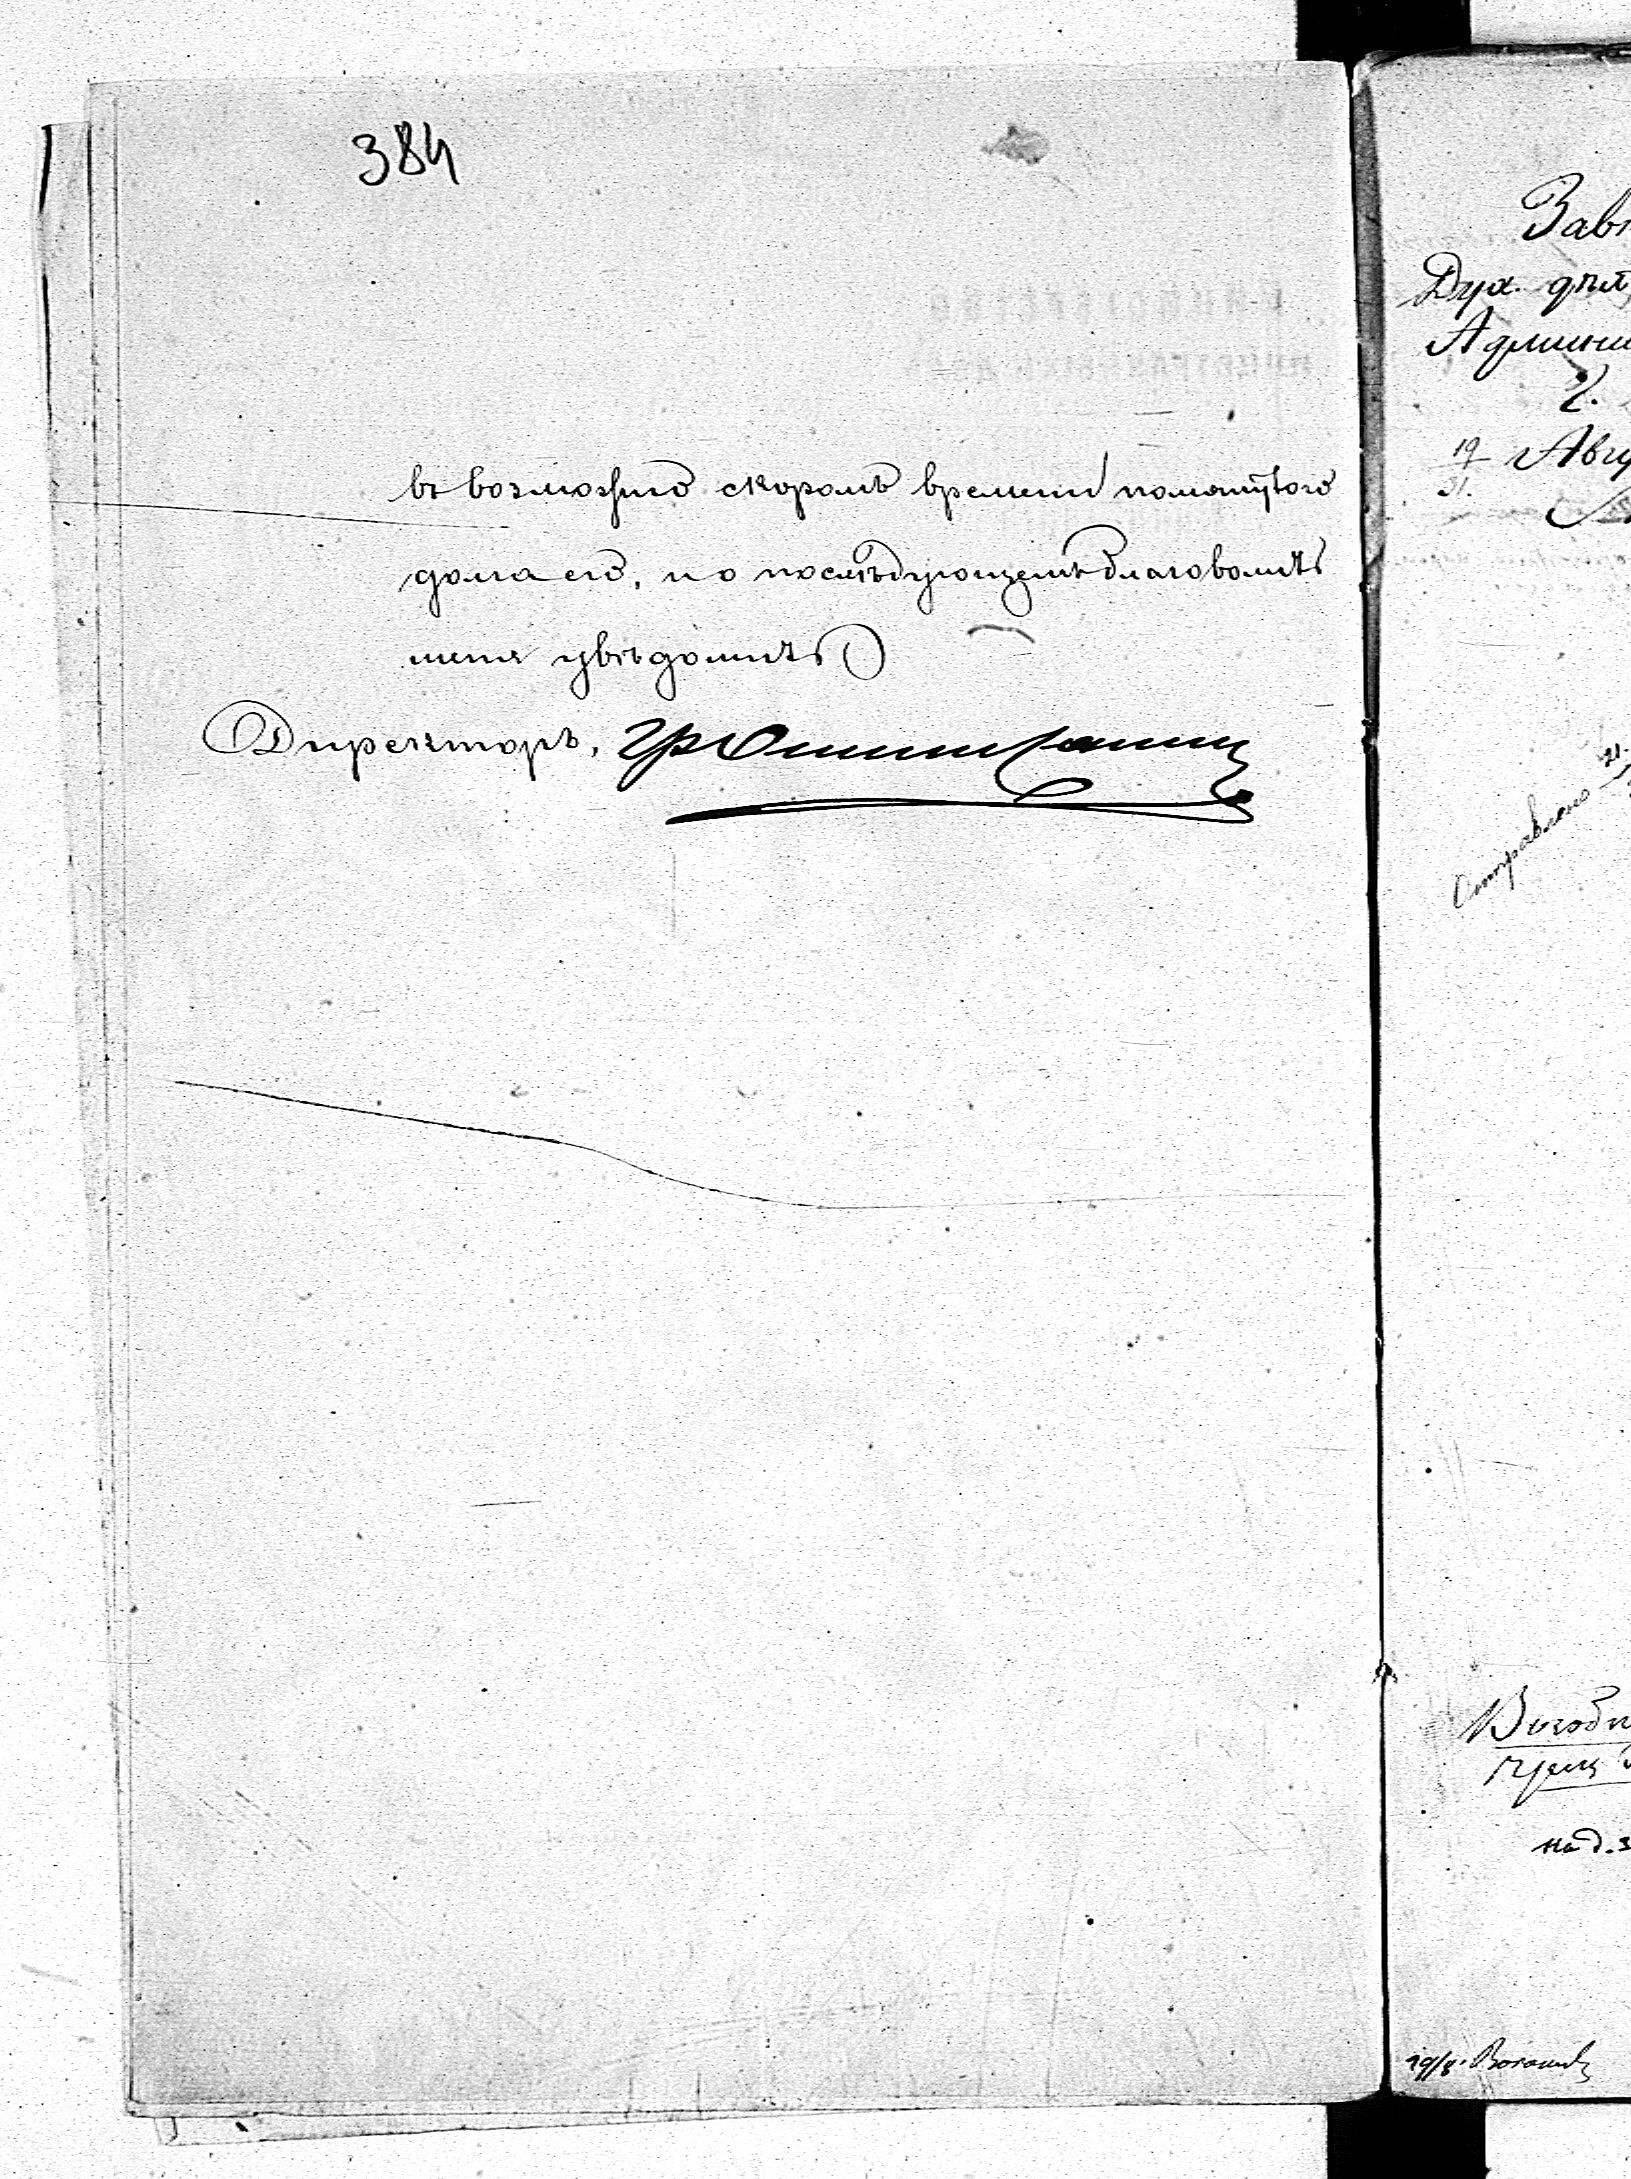 384
въ возможно скоромъ времени помянутого
дома его, и о послѣдующемъ благоволить
меня увѣдомить
Директоръ,
Зав
Дух. дѣл
Админи
19 Авгу
31.
Отправлено 21
на д. 3
19/8.